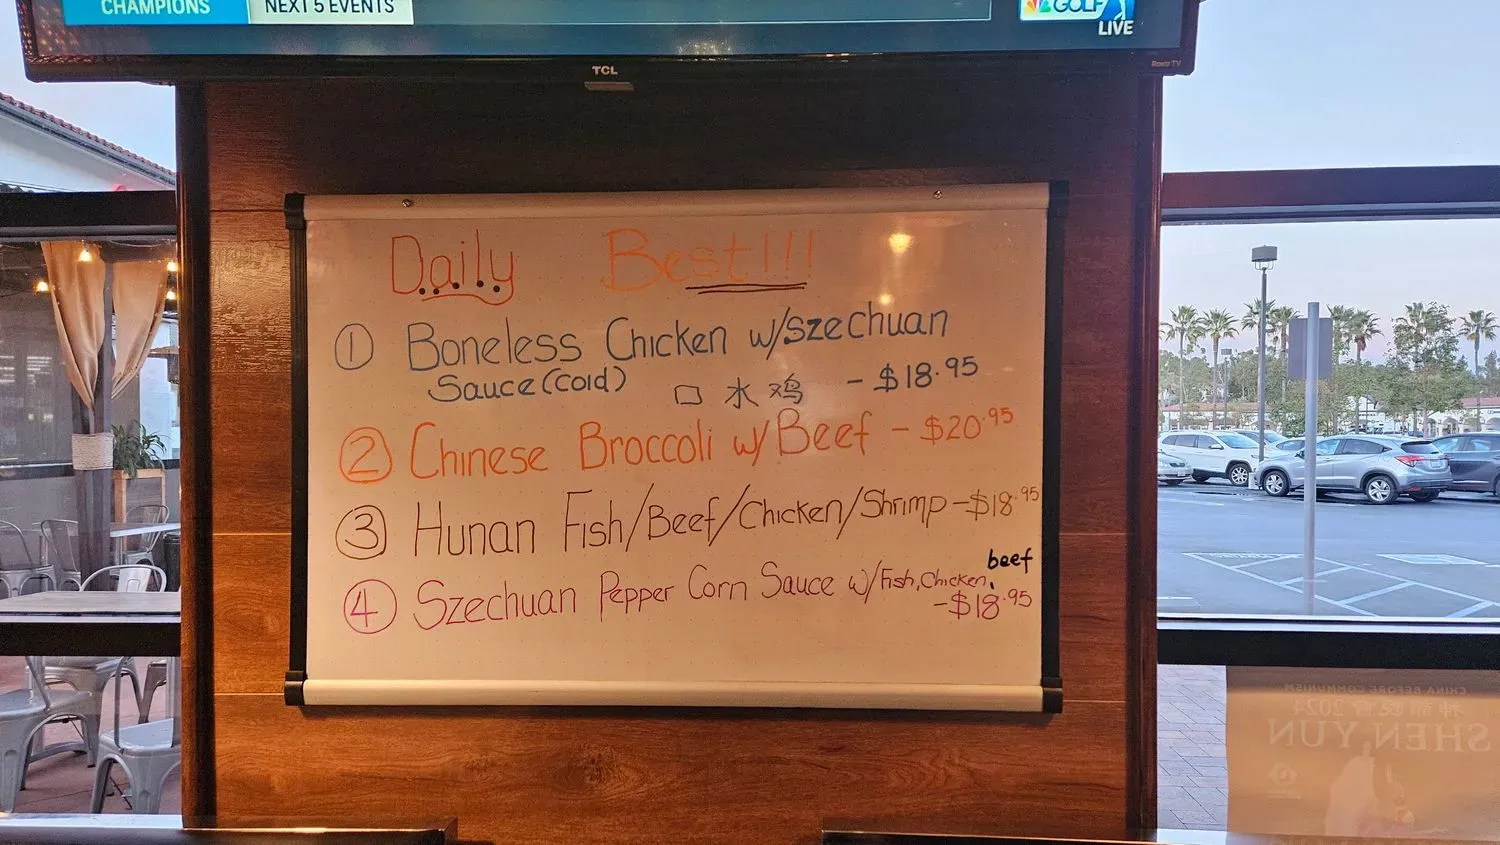 CHAMPIONS
NEXT 5 EVENTS
GOLF
LIVE
TCL
Roku TV
Daily Best!!!
① Boneless Chicken w/Szechuan
Sauce(Cold) 口水鸡 - $18.95
② Chinese Broccoli w/ Beef - $20.95
③ Hunan Fish/Beef/Chicken/Shrimp - $18.95
beef
④ Szechuan Pepper Corn Sauce w/Fish, Chicken,
- $18.95
CHINA BEFORE COMMUNISM
2024
SHEN YUN